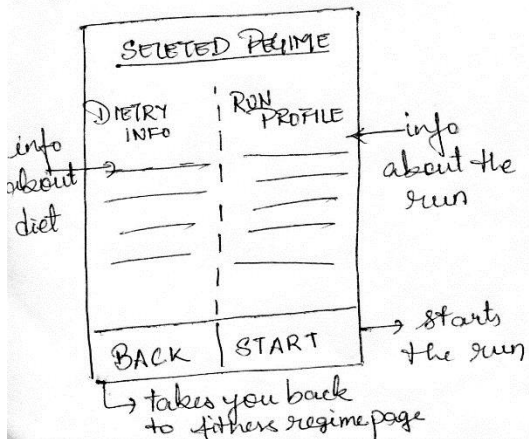 SELETED REGIME
DIETRY
INFO
RUN
PROFILE
info
about
diet
info
about the
run
BACK
START
starts
the run
takes you back
to fitness regime page